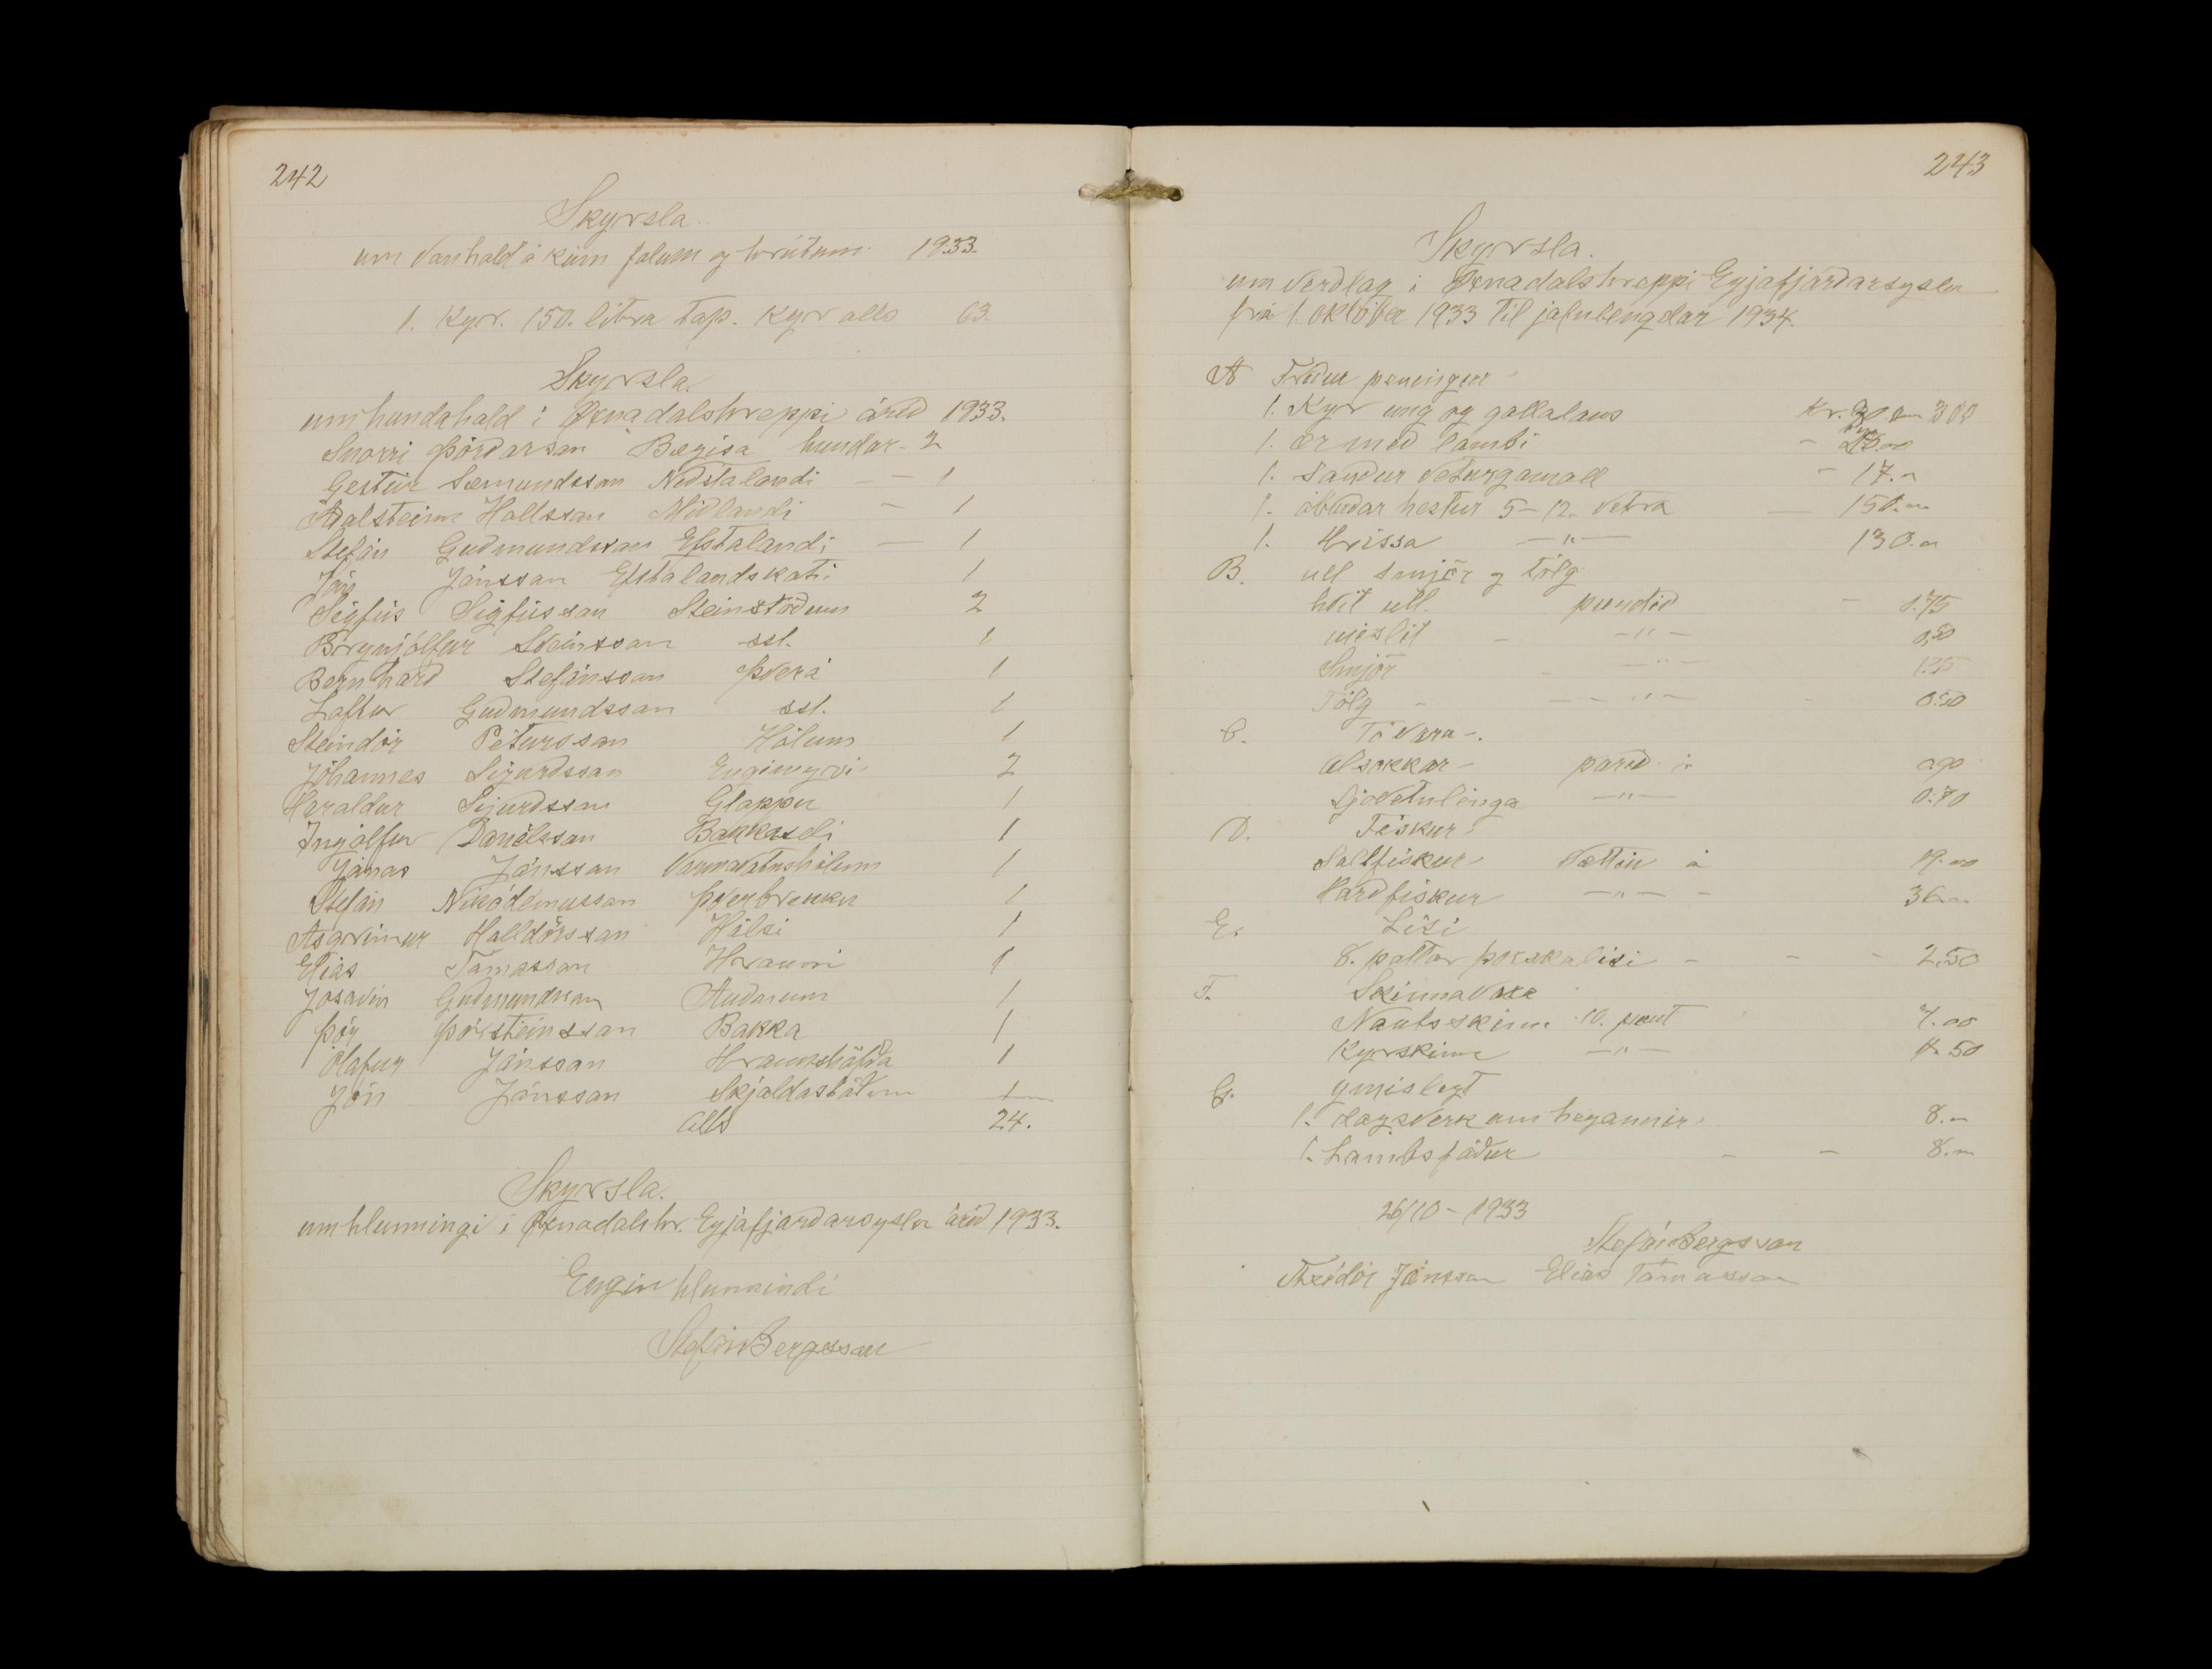 242
Skyrsla.
um vanhald á kúm folum og hrútum. 1933.
1. Kyr. 150. litra tap. Kyr alls 63.
Skyrsla.
um hundahald i Öxnadalshreppi árid 1933.
Snorri Þórdarson Bægisa hundar - 2
Gestur Sæmundsson Nedstalandi — — 1
Adalsteinn Hallsson Midlandi — 1
Stefán Gudmundsson Efstalandi — 1
Jón Jónsson Efstalandskoti 1
Sigfús Sigfússon Steinstödum 2
Brynjólfur Sveinsson sst. 1
Bernhard Stefánsson Þverá 1
Loftur Gudmundsson sst. 1
Steindór Pétursson Hólum 1
Jóhannes Sigurdsson Engimyri 2
Haraldur Sigurdsson Gloppu 1
Ingólfur Daníelsson Bakkaseli 1
Jónas Jónsson Varmavatnshólum 1
Stefán Nikódemusson Þverbrekku 1
Asgrimur Halldórsson Hálsi 1
Elias Tómasson Hrauni 1
Jósavin Gudmundsson Audnum 1
Þór Þórsteinsson Bakka 1
Ólafur Jónsson Hraunshöfda 1
Jón Jónsson Skjaldastödum 1
Alls 24.
Skyrsla.
um hlunningi i Öxnadalshr. Eyjafjardarsyslu árid 1933.
Engin hlunnindi
Stefán Bergsson
243
Skyrsla.
um verdlag i Öxnadalshreppi Eyjafjardarsyslu
frá 1. október 1933 til jafnlengdar 1934.
A Fridur peningur
1. Kyr ung og gallalaus Kr. 300
1. ær med lambi -
1. Saudur veturgamall - 17.-
1. áburdar hestur 5-12. vetra — 150.-
1. Hrissa —"— 130.-
B. ull smjör og tólg
hvit ull. pundid - 0.75
mislit - -"- 0,50
Smjör - —"— 1.25
Tólg - — "— - 0.50
C. Tóvara -.
Alsokkar - parid á
Sjóvetulinga —"— 0.70
D. Fiskur
Saltfiskur Vættin á 19.00
Hardfiskur —"— - 36.-
E. Lisi
8. pottar þorskalisi - - - 2.50
F. Skinnavara
Nautsskinn 10. pund 7.00
Kyrskinn —"— 4.50
G. ymislegt
1. dagsverk um heyannir 8.-
1. Lambsfódur - - 8.-
26/10 - 1933
Stefán Bergsson
Theódór Jónsson Elias Tómasson